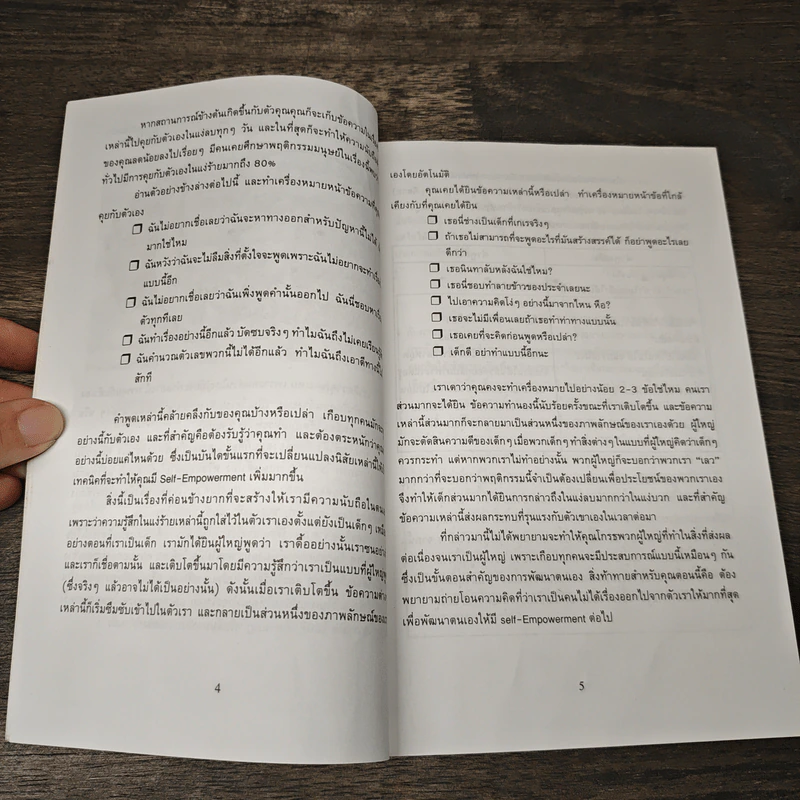 หากสถานการณ์ข้างต้นเกิดขึ้นกับตัวคุณคุณก็จะเก็บข้อความ
เหล่านี้ไปคุยกับตัวเองในแง่ลบทุกๆ วัน และในที่สุดก็จะทำให้ความ
ของคุณลดน้อยลงไปเรื่อยๆ มีคนเคยศึกษาพฤติกรรมมนุษย์ในเรื่องนี้
ทั่วไปมีการคุยกับตัวเองในแง่ร้ายมากถึง 80%
อ่านตัวอย่างข้างล่างต่อไปนี้ และทำเครื่องหมายหน้าข้อความที่
คุยกับตัวเอง
ฉันไม่อยากเชื่อเลยว่าฉันจะหาทางออกสำหรับปัญหานี้ไม่ได้
มากใช่ไหม
ฉันหวังว่าฉันจะไม่ลืมสิ่งที่ตั้งใจจะพูดเพราะฉันไม่อยากจะทำ
แบบนี้อีก
ฉันไม่อยากเชื่อเลยว่าฉันเพิ่งพูดคำนั้นออกไป ฉันนี่ชอบ
ตัวทุกทีเลย
ฉันทำเรื่องอย่างนี้อีกแล้ว บัดซบจริงๆ ทำไมฉันถึงไม่เคย
ฉันคำนวณตัวเลขพวกนี้ไม่ได้อีกแล้ว ทำไมฉันถึงเอาดีทาง
สักที
คำพูดเหล่านี้คล้ายคลึงกับของคุณบ้างหรือเปล่า เกือบทุกคนมัก
อย่างนี้กับตัวเอง และที่สำคัญคือต้องรับรู้ว่าคุณทำ และต้องตระหนักว่าคุณ
อย่างนี้บ่อยแค่ไหนด้วย ซึ่งเป็นบันไดขั้นแรกที่จะเปลี่ยนแปลงนิสัยเหล่านี้
เทคนิคที่จะทำให้คุณมี Self-Empowerment เพิ่มมากขึ้น
สิ่งนี้เป็นเรื่องที่ค่อนข้างยากที่จะสร้างให้เรามีความนับถือในตน
เพราะว่าความรู้สึกในแง่ร้ายเหล่านี้ถูกใส่ไว้ในตัวเราเองตั้งแต่ยังเป็นเด็กๆ
อย่างตอนที่เราเป็นเด็ก เรามักได้ยินผู้ใหญ่พูดว่า เราดื้ออย่างนั้นเราซนอย่าง
และเราก็เชื่อตามนั้น และเติบโตขึ้นมาโดยมีความรู้สึกว่าเราเป็นแบบที่ผู้ใหญ่
(ซึ่งจริงๆ แล้วอาจไม่ได้เป็นอย่างนั้น) ดังนั้นเมื่อเราเติบโตขึ้น ข้อความ
เหล่านี้ก็เริ่มซึมซับเข้าไปในตัวเรา และกลายเป็นส่วนหนึ่งของภาพลักษณ์ของ
4
เองโดยอัตโนมัติ
คุณเคยได้ยินข้อความเหล่านี้หรือเปล่า ทำเครื่องหมายหน้าข้อที่ใกล้
เคียงกับที่คุณเคยได้ยิน
เธอนี่ช่างเป็นเด็กที่เกเรจริงๆ
ถ้าเธอไม่สามารถที่จะพูดอะไรที่มันสร้างสรรค์ได้ ก็อย่าพูดอะไรเลย
ดีกว่า
เธอนินทาลับหลังฉันใช่ไหม?
เธอนี่ชอบทำลายข้าวของประจำเลยนะ
ไปเอาความคิดโง่ๆ อย่างนี้มาจากไหน หือ?
เธอจะไม่มีเพื่อนเลยถ้าเธอทำท่าทางแบบนั้น
เธอเคยที่จะคิดก่อนพูดหรือเปล่า?
เด็กดี อย่าทำแบบนี้อีกนะ
เราเดาว่าคุณคงจะทำเครื่องหมายไปอย่างน้อย 2-3 ข้อใช่ไหม คนเรา
ส่วนมากจะได้ยิน ข้อความทำนองนี้นับร้อยครั้งขณะที่เราเติบโตขึ้น และข้อความ
เหล่านี้ส่วนมากก็จะกลายมาเป็นส่วนหนึ่งของภาพลักษณ์ของเราเองด้วย ผู้ใหญ่
มักจะตัดสินความดีของเด็กๆเมื่อพวกเด็กๆทำสิ่งต่างๆในแบบที่ผู้ใหญ่คิดว่าเด็กๆ
ควรกระทำ แต่หากพวกเราไม่ทำอย่างนั้น พวกผู้ใหญ่ก็จะบอกว่าพวกเรา "เลว"
มากกว่าที่จะบอกว่าพฤติกรรมนี้จำเป็นต้องเปลี่ยนเพื่อประโยชน์ของพวกเราเอง
จึงทำให้เด็กส่วนมากได้ยินการกล่าวถึงในแง่ลบมากกว่าในแง่บวก และที่สำคัญ
ข้อความเหล่านี้ส่งผลกระทบที่รุนแรงกับตัวเขาเองในเวลาต่อมา
ที่กล่าวมานี้ไม่ได้พยายามจะทำให้คุณโกรธพวกผู้ใหญ่ที่ทำในสิ่งที่ส่งผล
ต่อเนื่องจนเราเป็นผู้ใหญ่ เพราะเกือบทุกคนจะมีประสบการณ์แบบนี้เหมือนๆ กัน
ซึ่งเป็นขั้นตอนสำคัญของการพัฒนาตนเอง สิ่งท้าทายสำหรับคุณตอนนี้คือ ต้อง
พยายามถ่ายโอนความคิดที่ว่าเราเป็นคนไม่ได้เรื่องออกไปจากตัวเราให้มากที่สุด
เพื่อพัฒนาตนเองให้มี self-Empowerment ต่อไป
5